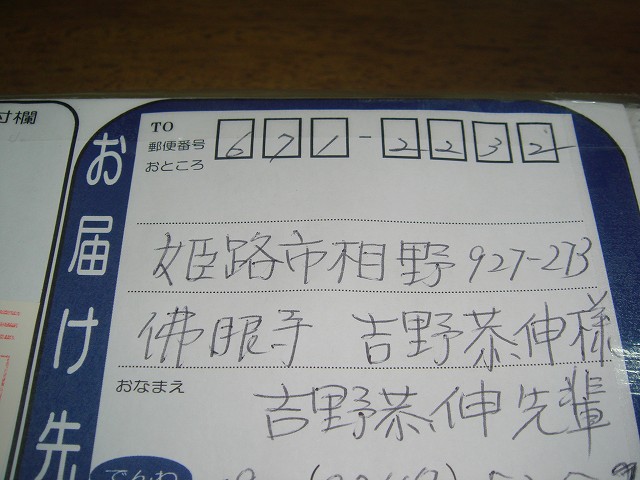 付欄
お届け先
TO
郵便番号 671-2232
おところ
姫路市相野927-273
佛眼寺 吉野恭伸様
おなまえ
吉野恭伸先輩
でんわ